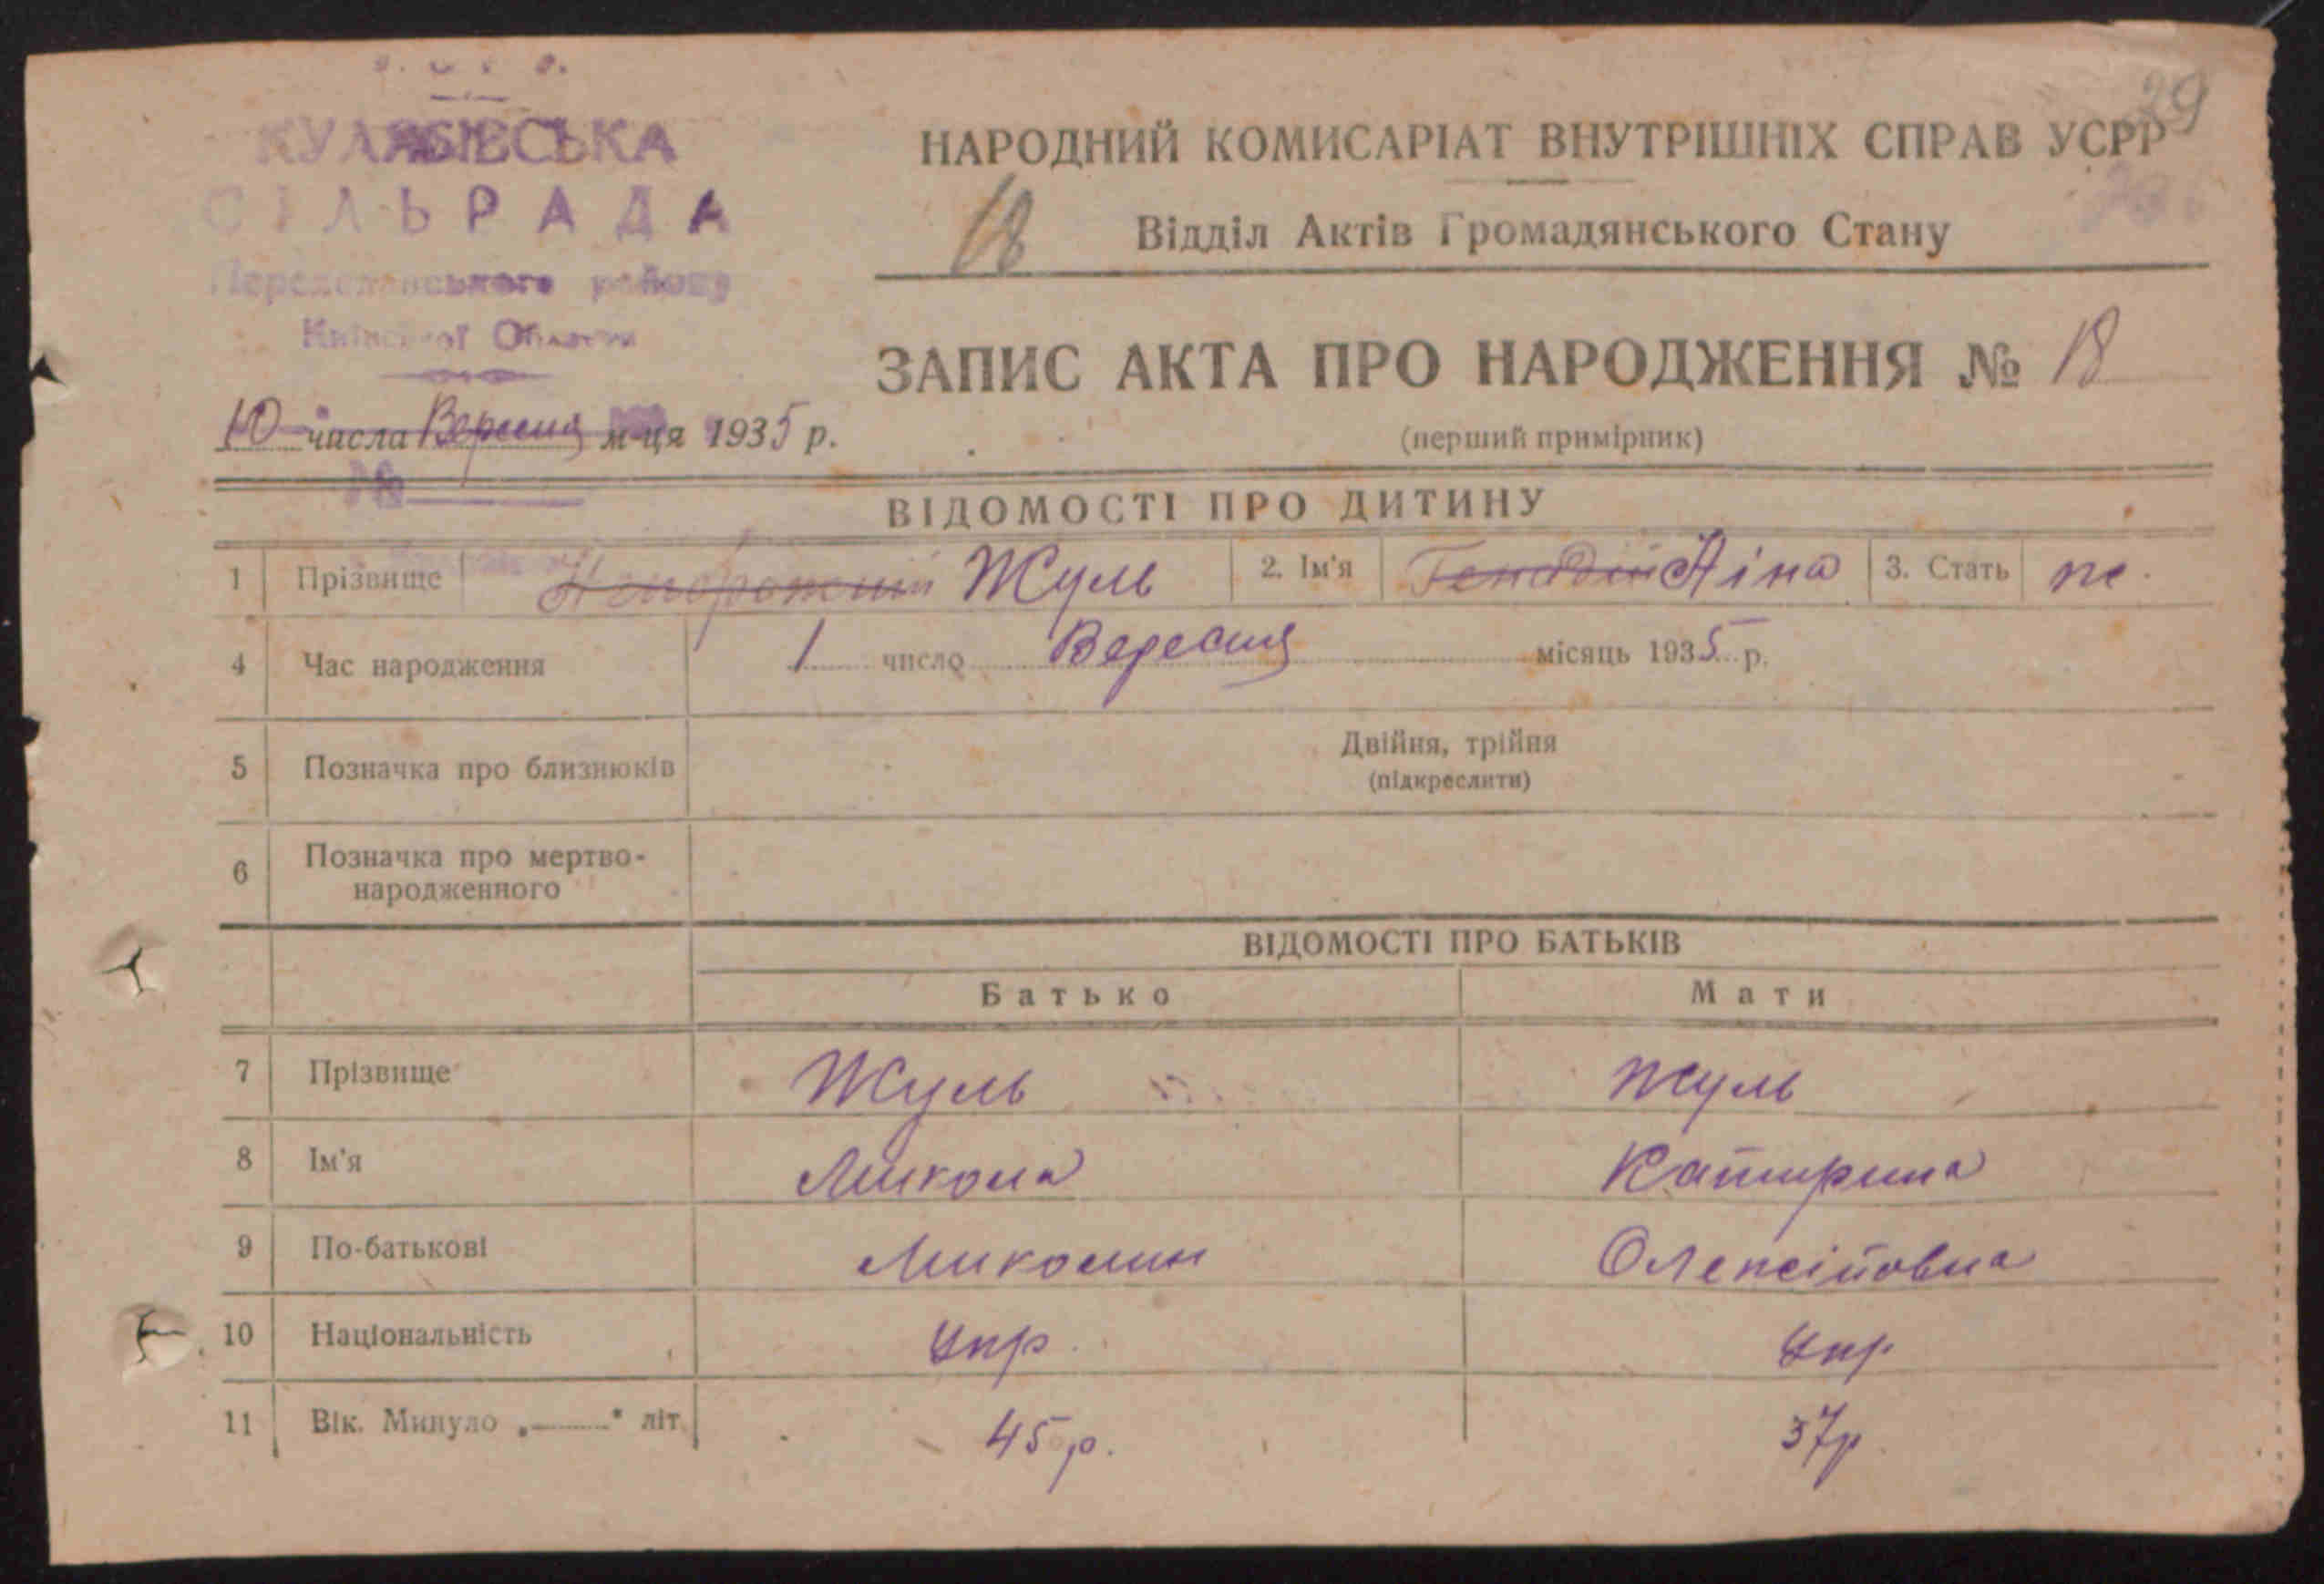 29
СІЛЬРАДА
району
Київської Области
НАРОДНИЙ КОМИСАРІАТ ВНУТРІШНІХ СПРАВ УСРР
18 Відділ Актів Громадянського Стану
ЗАПИС АКТА ПРО НАРОДЖЕННЯ № 18
(перший примірник)
10 числа Вересня м-ця 1935 р.
№
ВІДОМОСТІ ПРО ДИТИНУ
1 Прізвище Жуль 2. Ім'я Генадій Ніна 3. Стать ж.
4 Час народження 1 число Вересня місяць 1935 р.
5 Позначка про близнюків Двійня, трійня
(підкреслити)
6 Позначка про мертво-
народженного
ВІДОМОСТІ ПРО БАТЬКІВ
Батько Мати
7 Прізвище Жуль Жуль
8 Ім'я Микола Катирина
9 По-батькові Миколин Олексійовна
10 Національність Укр. Укр
11 Вік. Минуло „ " літ 45 р. 37р